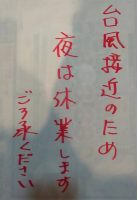 台風接近のため
夜は休業します
ご了承ください